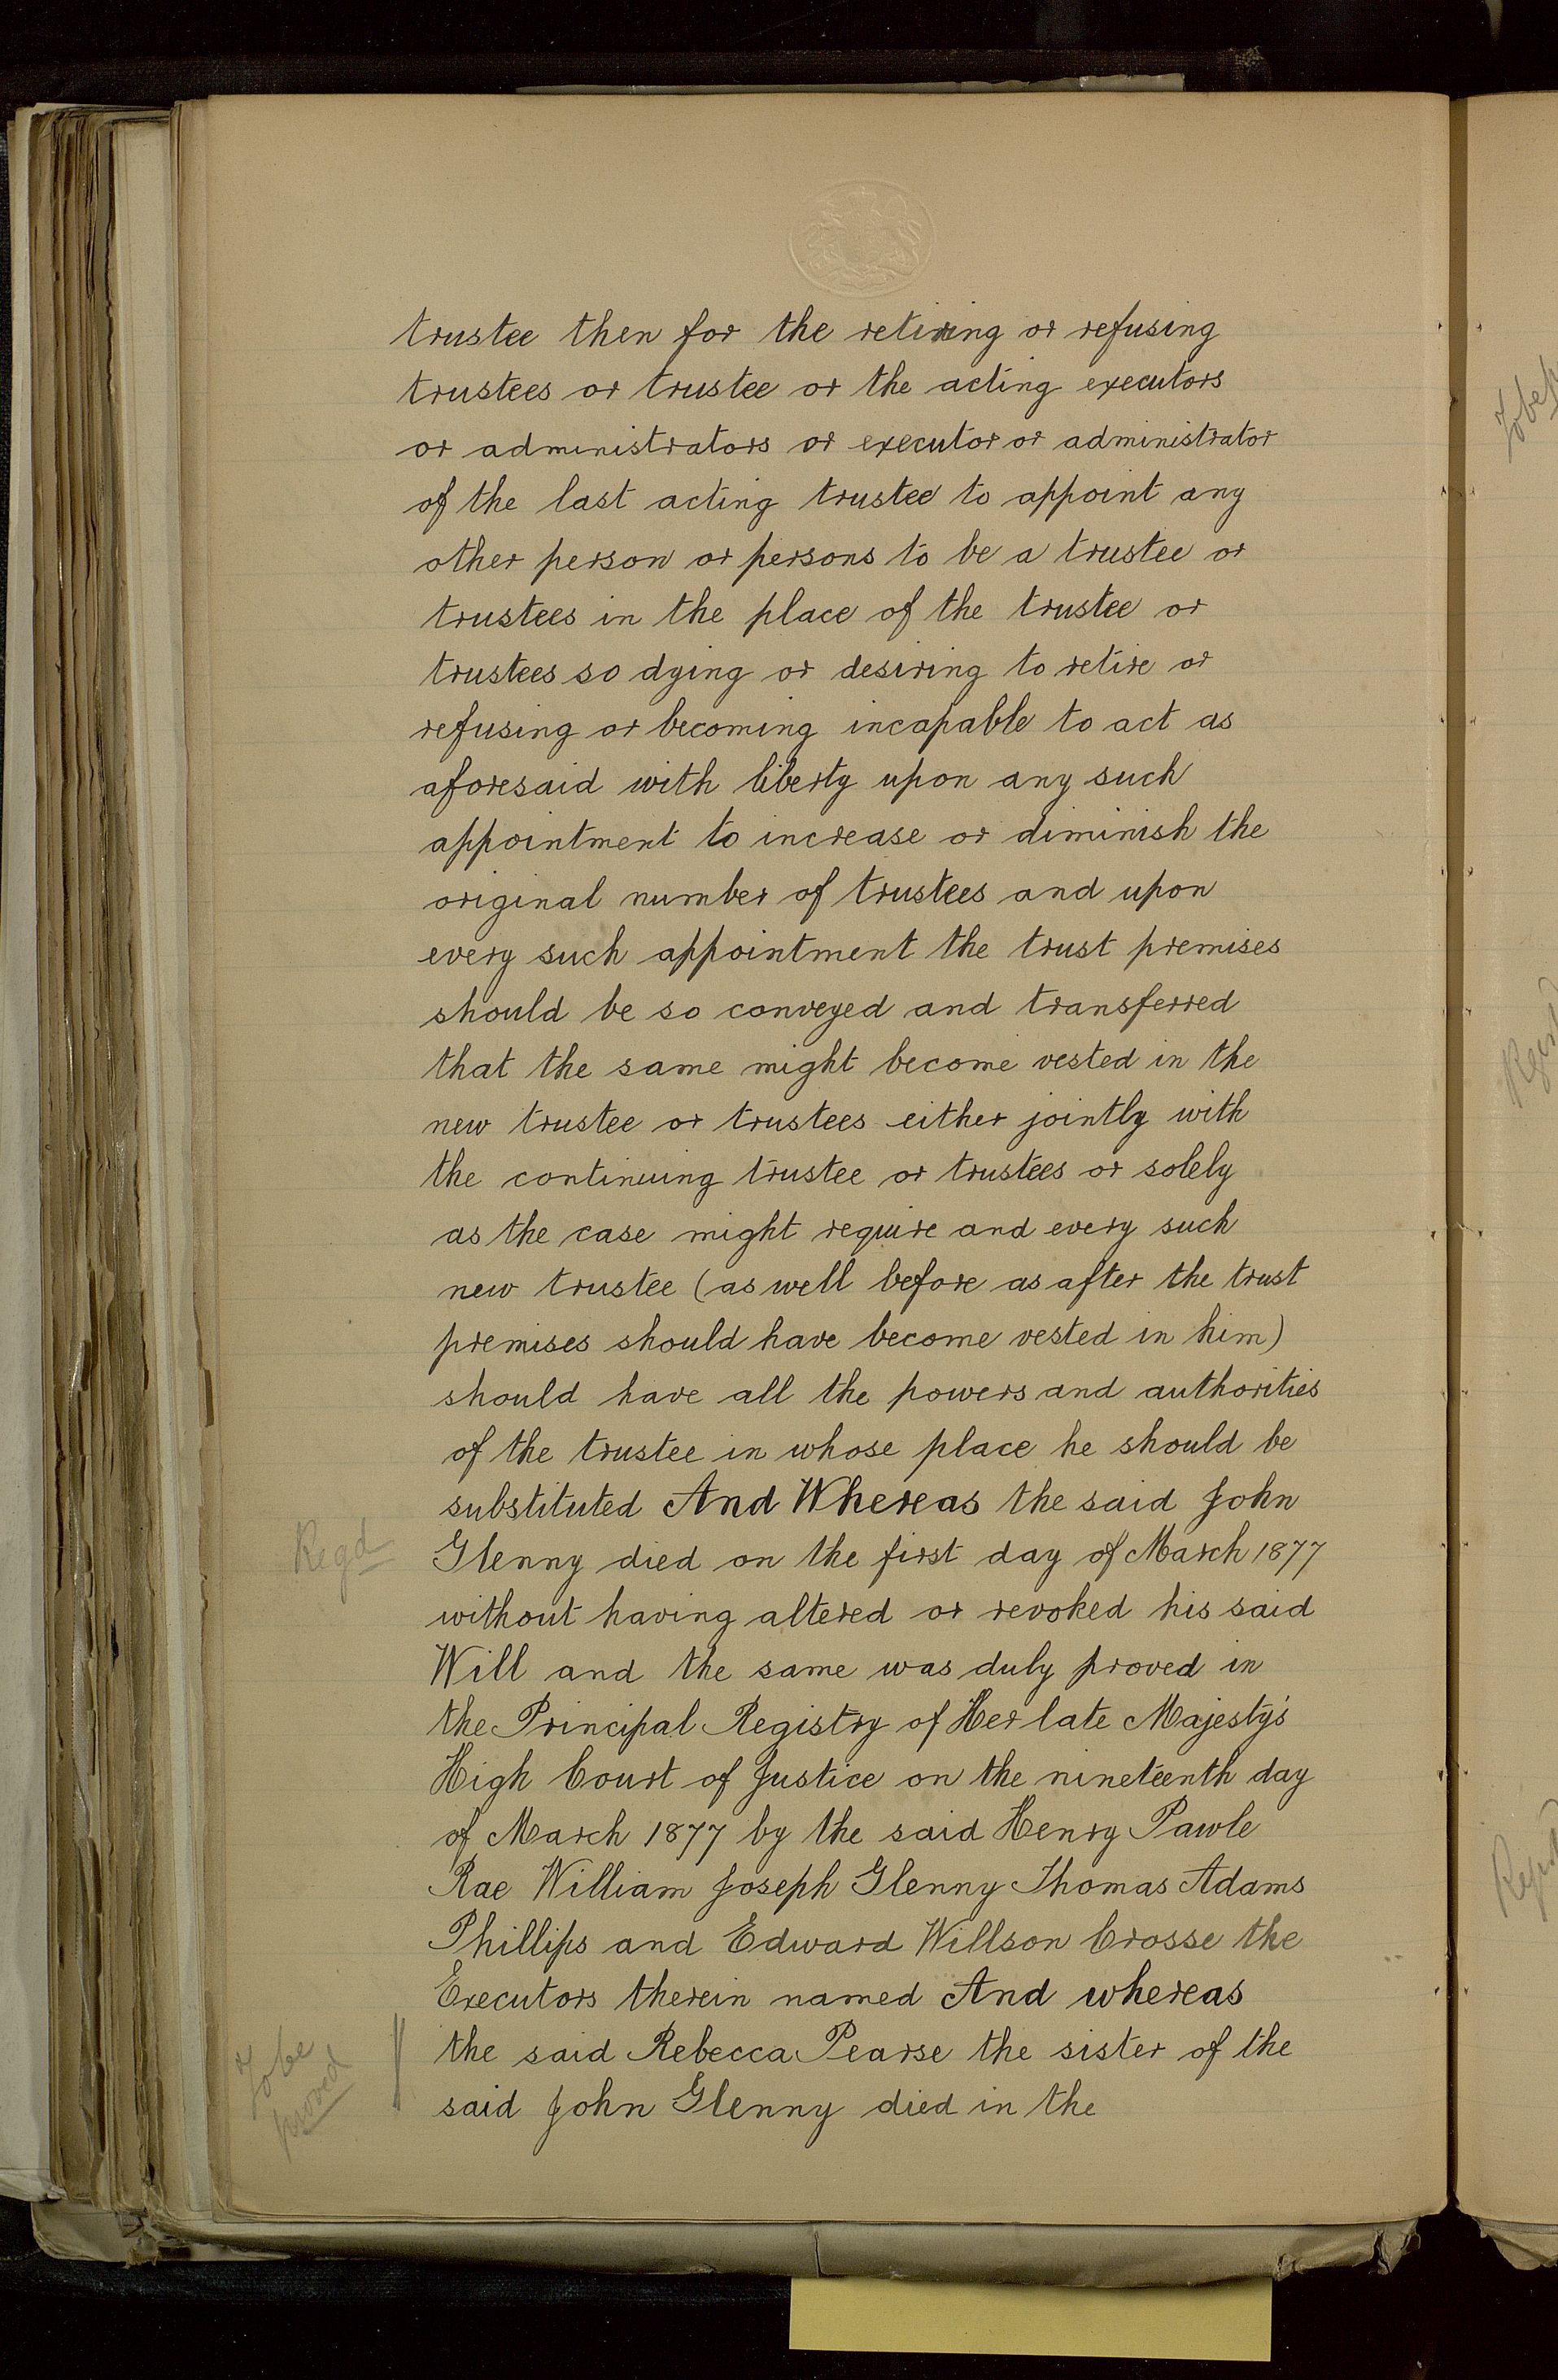 trustee then for the retiring or refusing
trustees or trustee or the acting executors
or administrators or executor or administrator
of the last acting trustee to appoint any
other person or persons to be a trustee or
trustees in the place of the trustee or
trustees so dying or desiring to retire or
refusing or becoming incapable to act as
aforesaid with liberty upon any such
appointment to increase or diminish the
original number of trustees and upon
every such appointment the trust premises
should be so conveyed and transferred
that the same might become vested in the
new trustee or trustees either jointly with
the continuing trustee or trustees or solely
as the case might require and every such
new trustee (as well before as after the trust
premises should have become vested in him)
should have all the powers and authorities
of the trustee in whose place he should be
substituted And Whereas the said John
Regd
Glenny died on the first day of March 1877
without having altered or revoked his said
Will and the same was duly proved in
the Principal Registry of Her late Majesty's
High Court of Justice on the nineteenth day
of March 1877 by the said Henry Pawle
Rae William Joseph Glenny Thomas Adams
Phillips and Edward Willson Crosse the
Executors therein named And whereas
To be
proved
the said Rebecca Pearse the sister of the
said John Glenny died in the